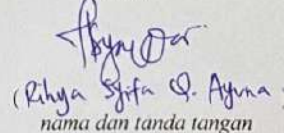 (Rihya Syifa Q. Ayuna
nama dan tanda tangan